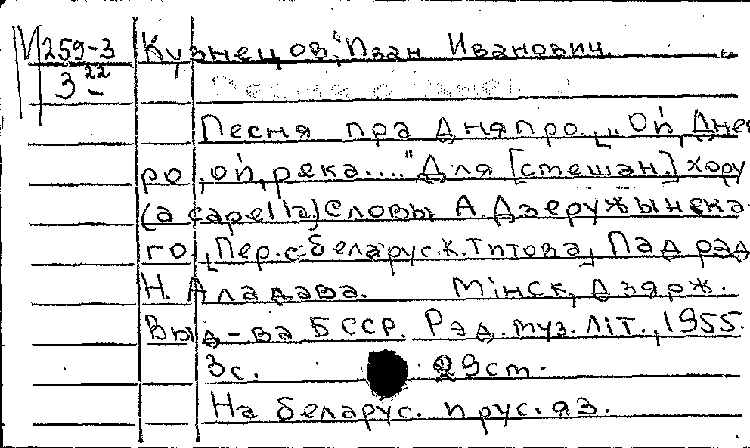 М 259-3 Кузнецов, Иван Иванович.
3 22
Песня пра Дняпро. „Ой, Днеп
ро, ой, река...." Для [смешан.] хору
(a capella) Словы А Дзеружынска
го, [Пер. с беларус. К. Титова], Пад рэд
Н. Аладава. Мінск, Дзярж.
Выд-ва БССР. Рэд. муз. літ., 1955.
3 с. 29 cm.
На беларус. и рус. яз.